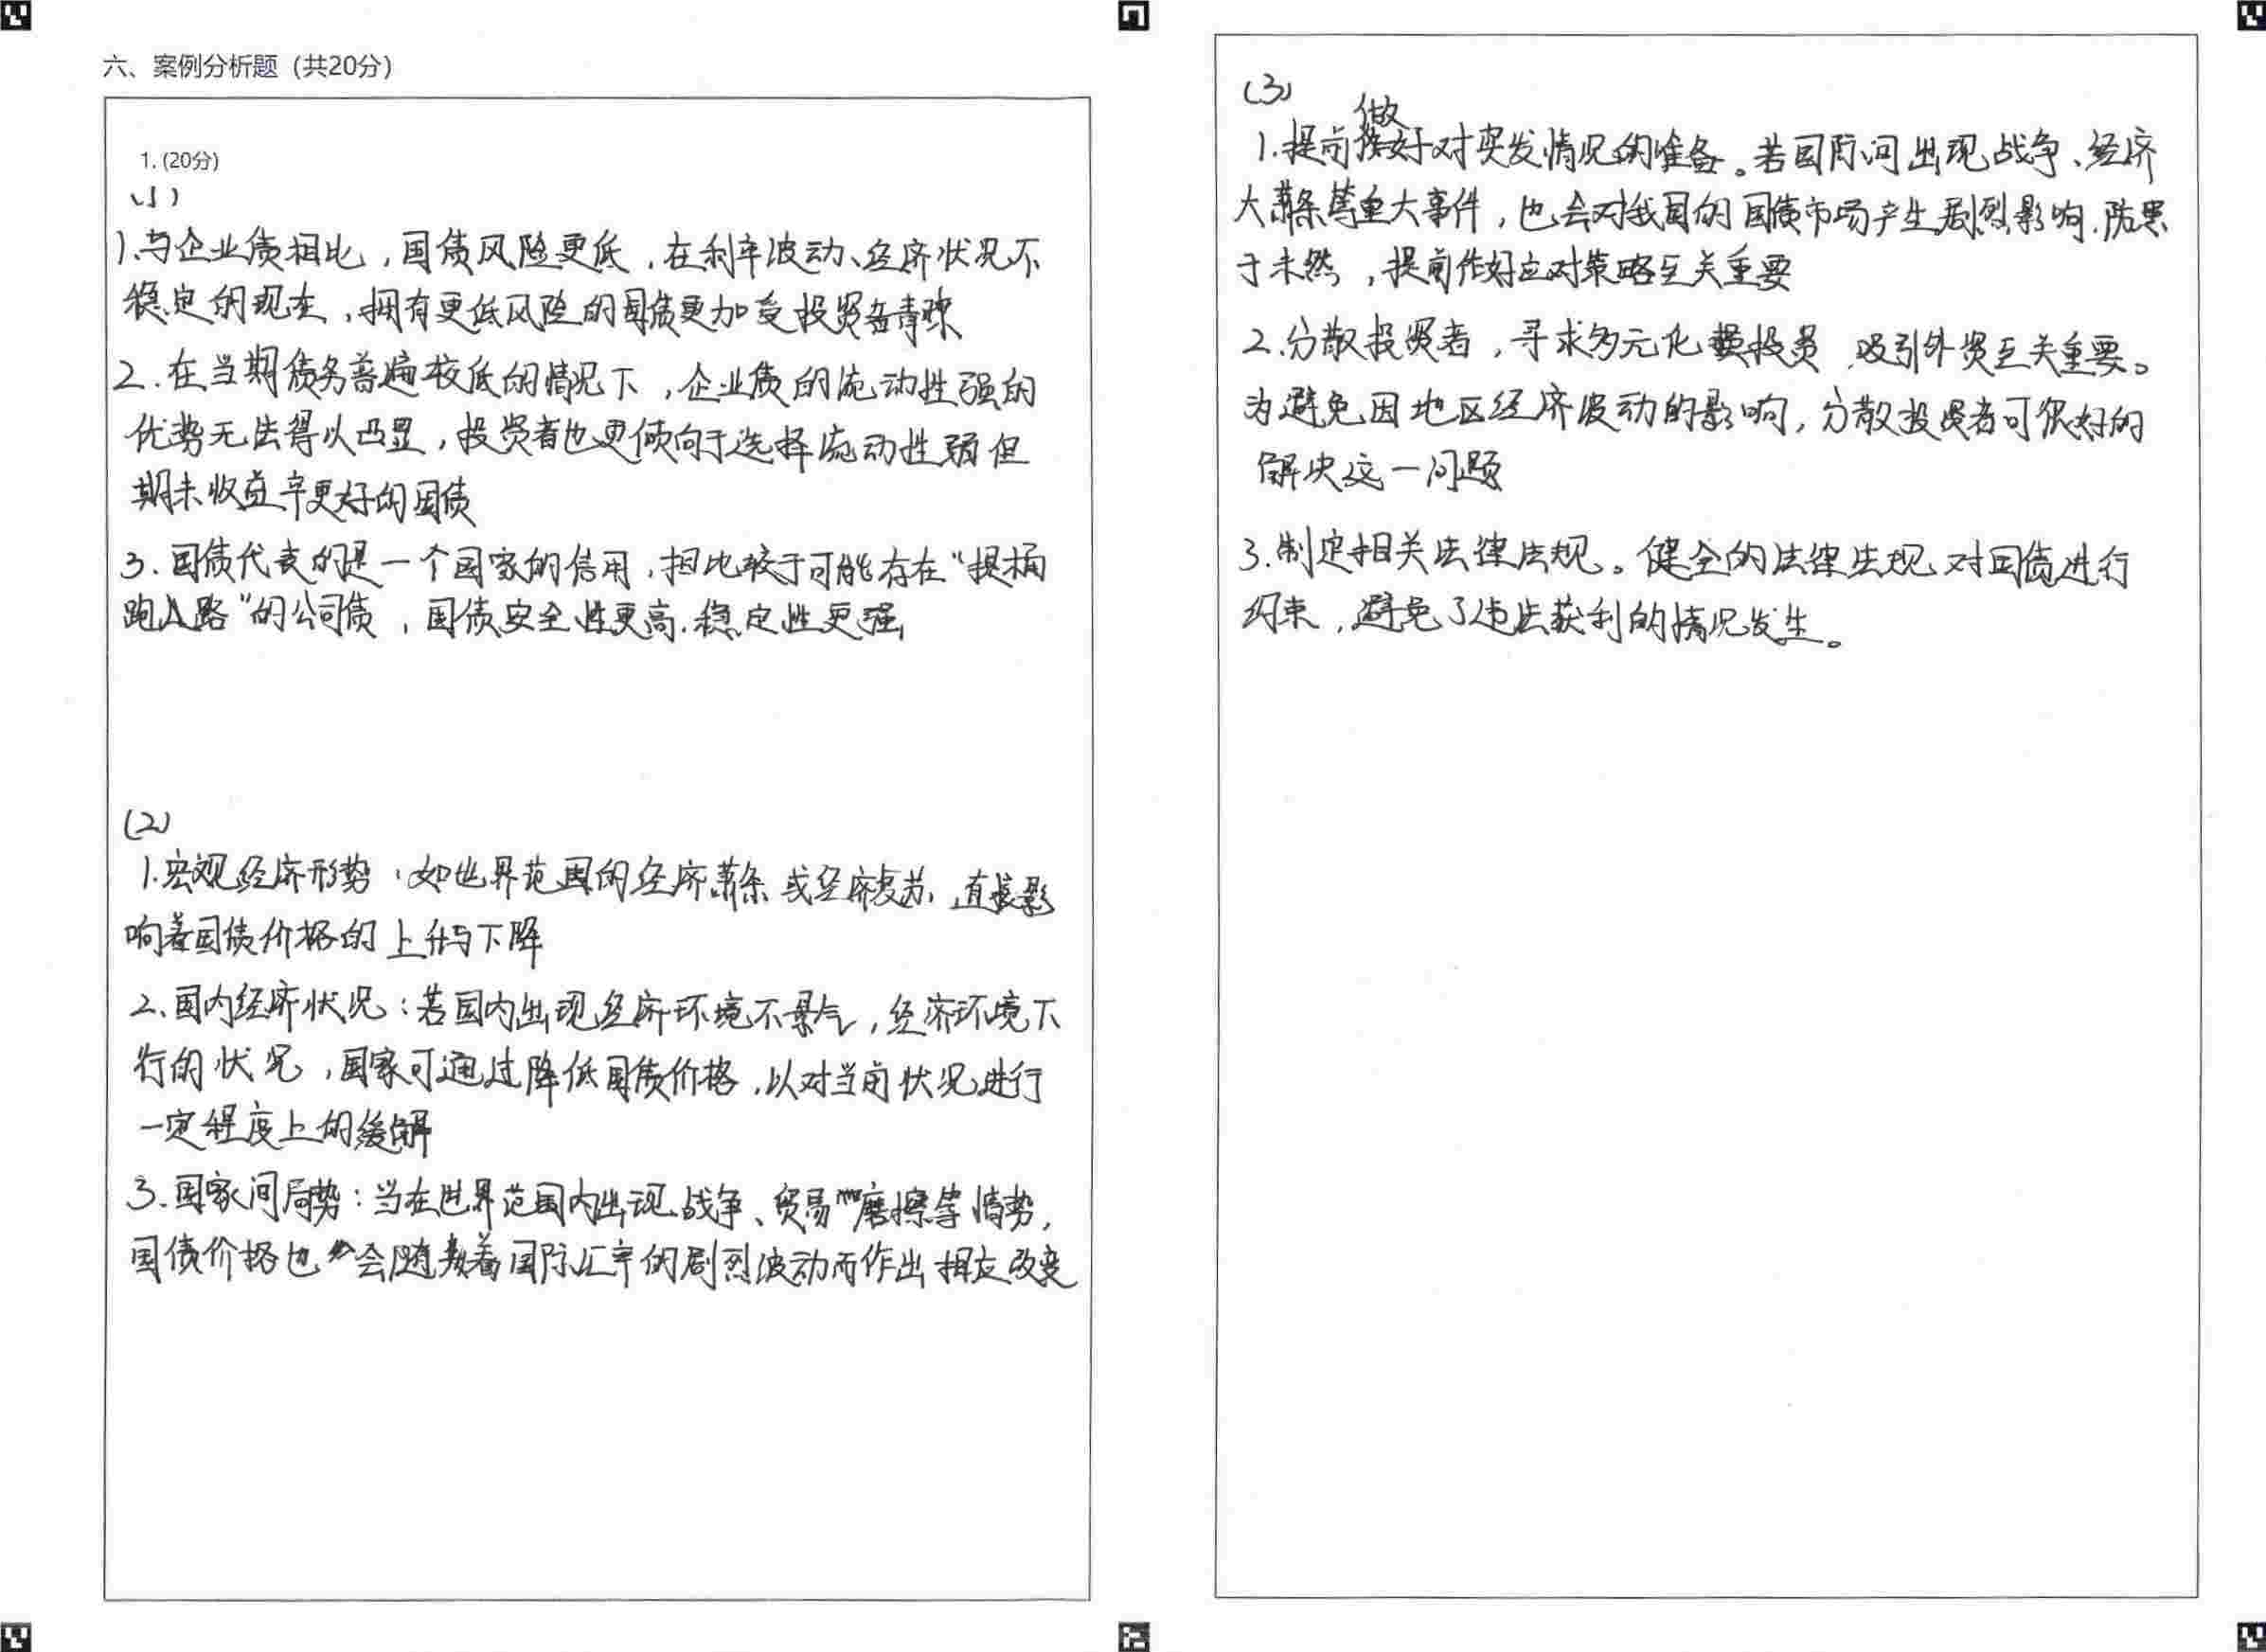 六、案例分析题（共20分）
1. (20分)
(1)
1.与企业债相比，国债风险更低，在利率波动、经济状况不
稳定的现在，拥有更低风险的国债更加受投资者青睐
2.在当期债务普遍较低的情况下，企业债的流动性强的
优势无法得以凸显，投资者也更倾向于选择流动性弱但
期末收益率更好的国债
3.国债代表的是一个国家的信用，相比较于可能存在“提桶
跑路”的公司债，国债安全性更高.稳定性更强
(2)
1.宏观经济形势：如世界范围的经济萧条或经济复苏，直接影
响着国债价格的上升与下降
2.国内经济状况：若国内出现经济环境不景气，经济环境下
行的状况，国家可通过降低国债价格，以对当前状况进行
一定程度上的缓解
3.国家间局势：当在世界范围内出现战争、贸易摩擦等情势，
国债价格也会随着国际汇率的剧烈波动而作出相应改变
(3)
1.提前做好对突发情况的准备。若国际间出现战争、经济
大萧条等重大事件，也会对我国的国债市场产生剧烈影响.防患
于未然，提前作好应对策略至关重要
2.分散投资者，寻求多元化投资，吸引外资至关重要。
为避免因地区经济波动的影响，分散投资者可很好的
解决这一问题
3.制定相关法律法规。健全的法律法规对国债进行
约束，避免了违法获利的情况发生。